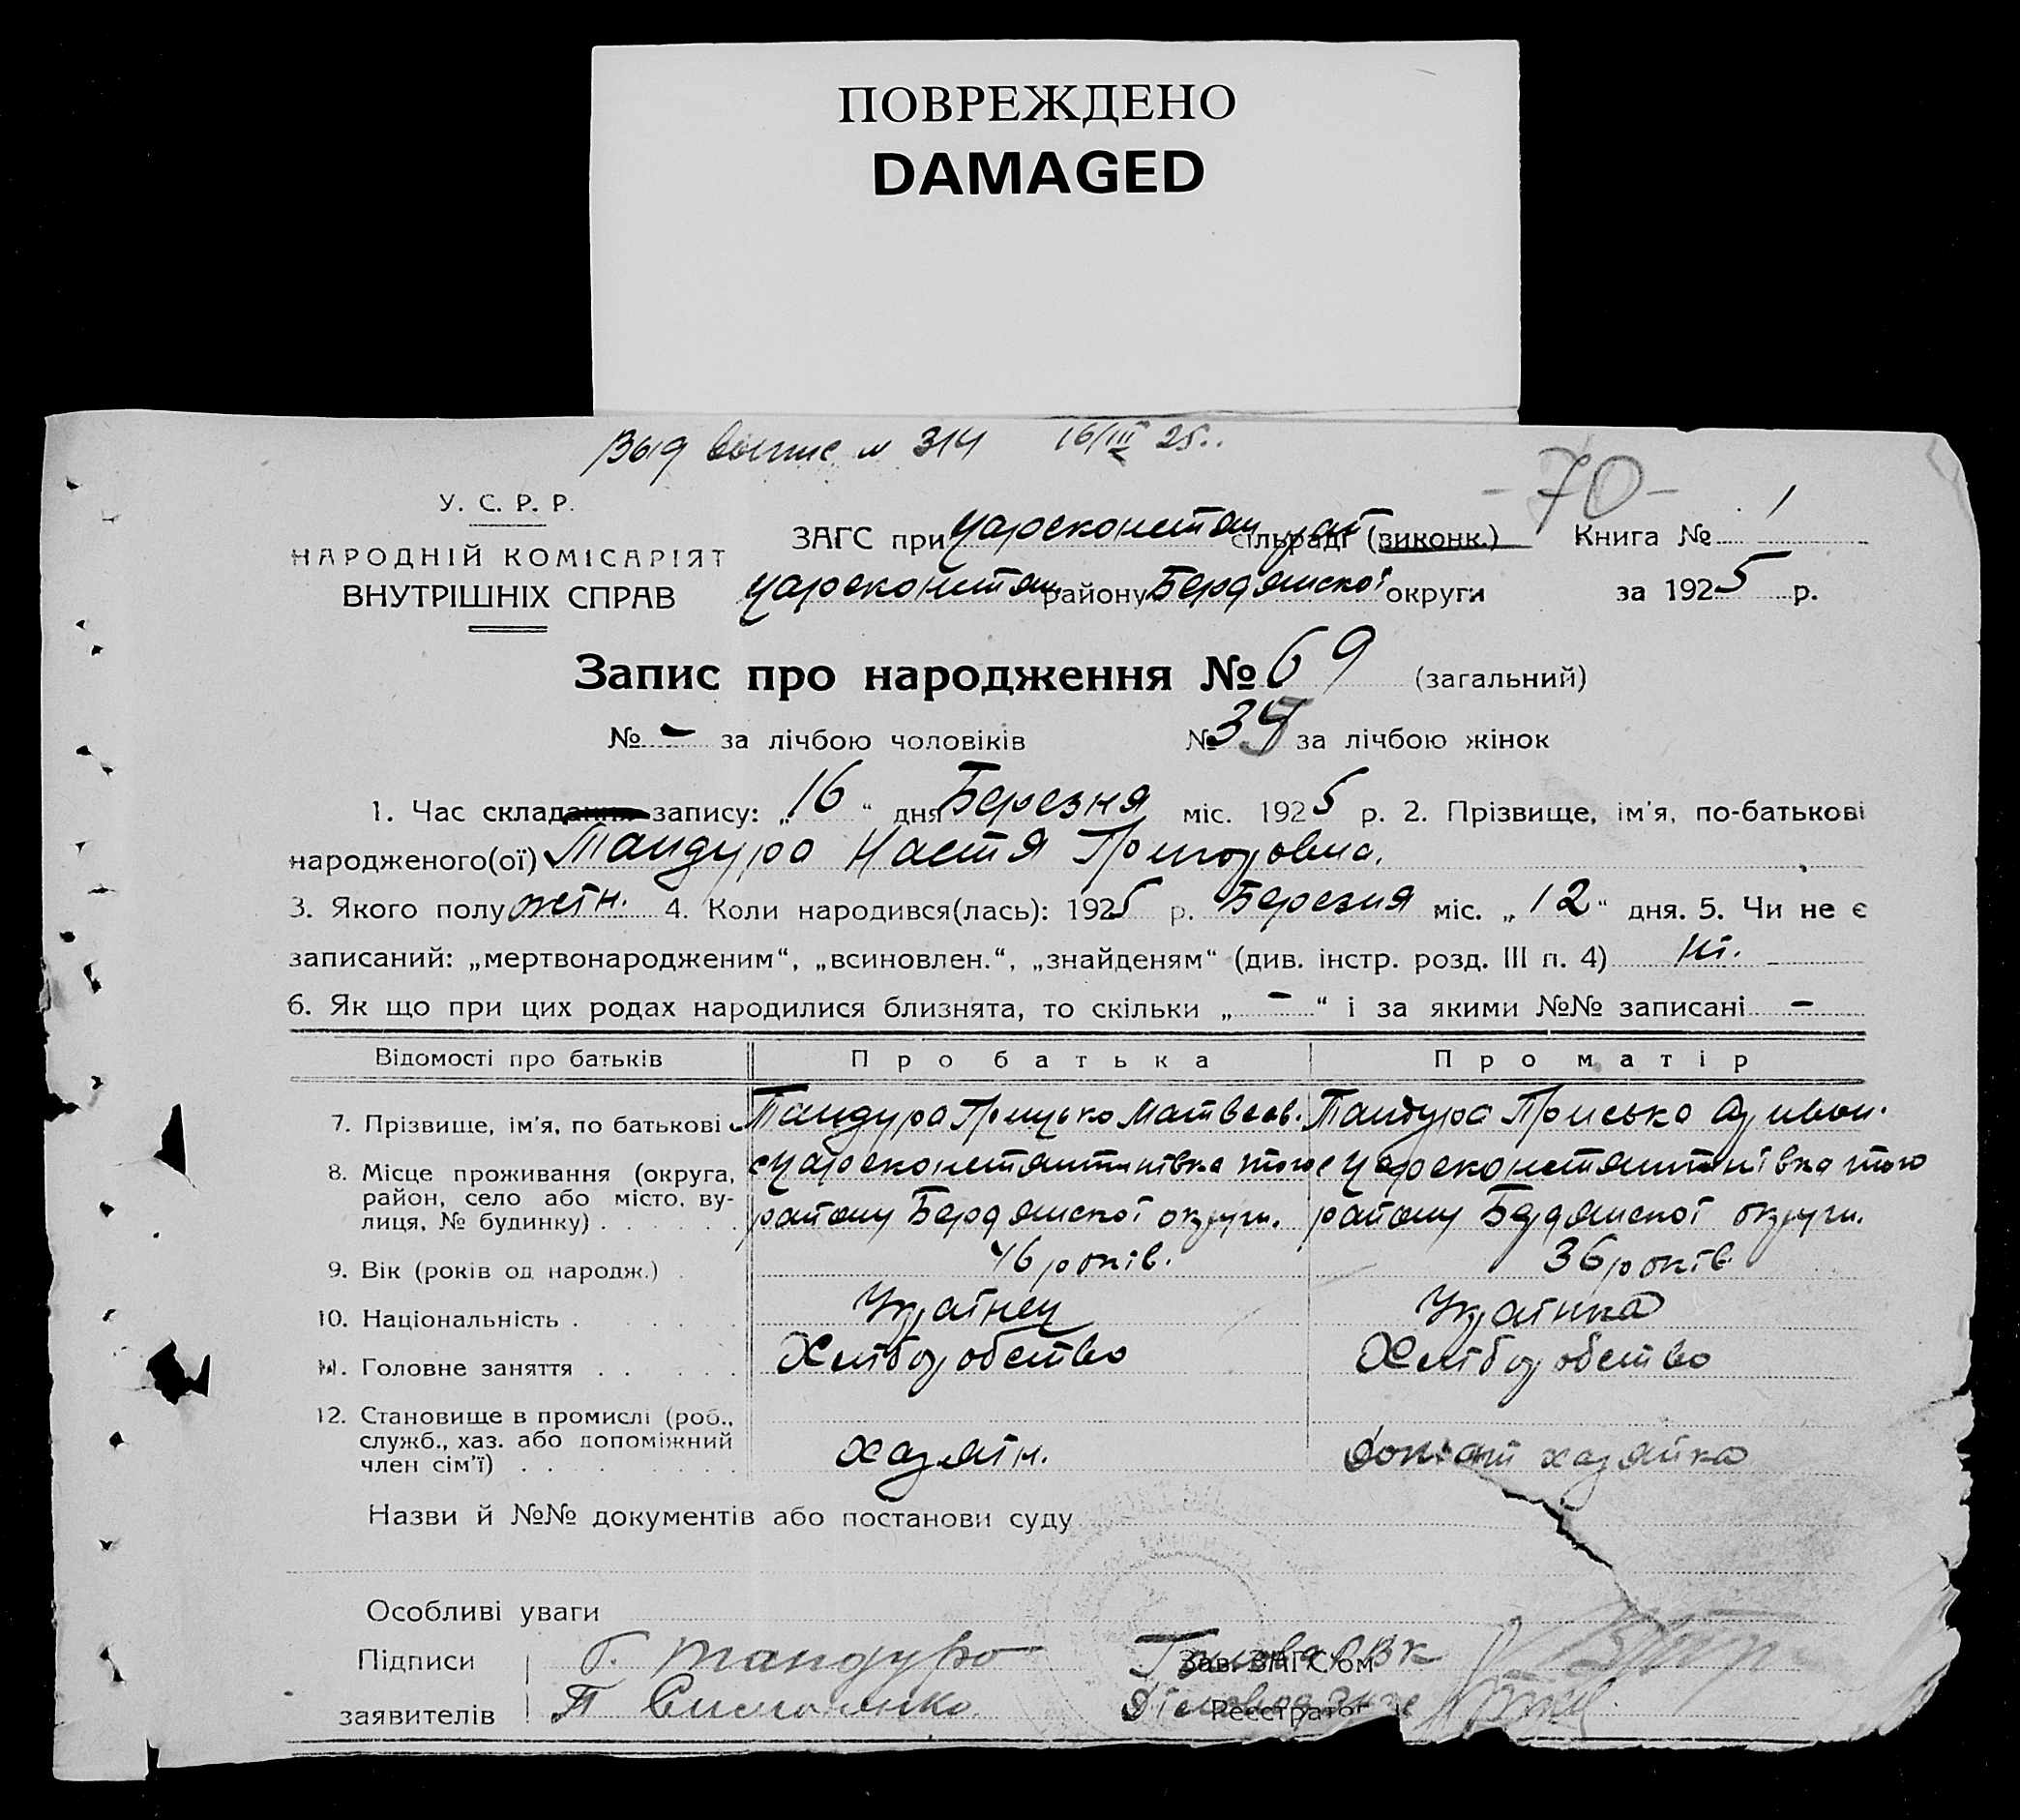 ПОВРЕЖДЕНО
DAMAGED
№ 314 16/III 25..
-70-
У. С. Р. Р.
НАРОДНІЙ КОМІСАРІЯТ
ВНУТРІШНІХ СПРАВ
ЗАГС при Цареконстан рай сільраді (виконк.) Книга № 1
Цареконстан району Бердянскоі округи за 1925 р.
Запис про народження № 69 (загальний)
№ - за лічбою чоловіків № за лічбою жінок
1. Час складання запису: „16“ дня Березня міс. 1925 р. 2. Прізвище, ім'я, по-батькові
народженого(ої) Тандура Настя Григоровна.
3. Якого полу жін. 4. Коли народився(лась): 1925 р. Березня міс. „12“ дня. 5. Чи не є
записаний: „мертвонародженим“, „всиновлен.“, „знайденям“ (див. інстр. розд. III п. 4) Ні.
6. Як що при цих родах народилися близнята, то скільки „ - “ і за якими №№ записані -
Відомості про батьків Про батька Про матір
7. Прізвище, ім'я, по батькові Тандура Грицько Матвеев. Тандура Приська
8. Місце проживання (округа, район, село або місто, вулиця, № будинку) с Цареконстянтинівка того с Цареконстянтинівка того
району Бердянскоі округи. району Бердянскоі округи.
9. Вік (років од народж.) 46 років. 36 років
10. Національність Украінец Украінка
11. Головне заняття Хліборобство Хліборобство
12. Становище в промислі (роб., служб., хаз. або допоміжний член сім'ї) хазяін. хазяйка
Назви й №№ документів або постанови суду
Особливі уваги
Підписи Г. Тандура Голова РВК
Зав. ЗАГС'ом
заявителів П Симоненко
Реєстратор